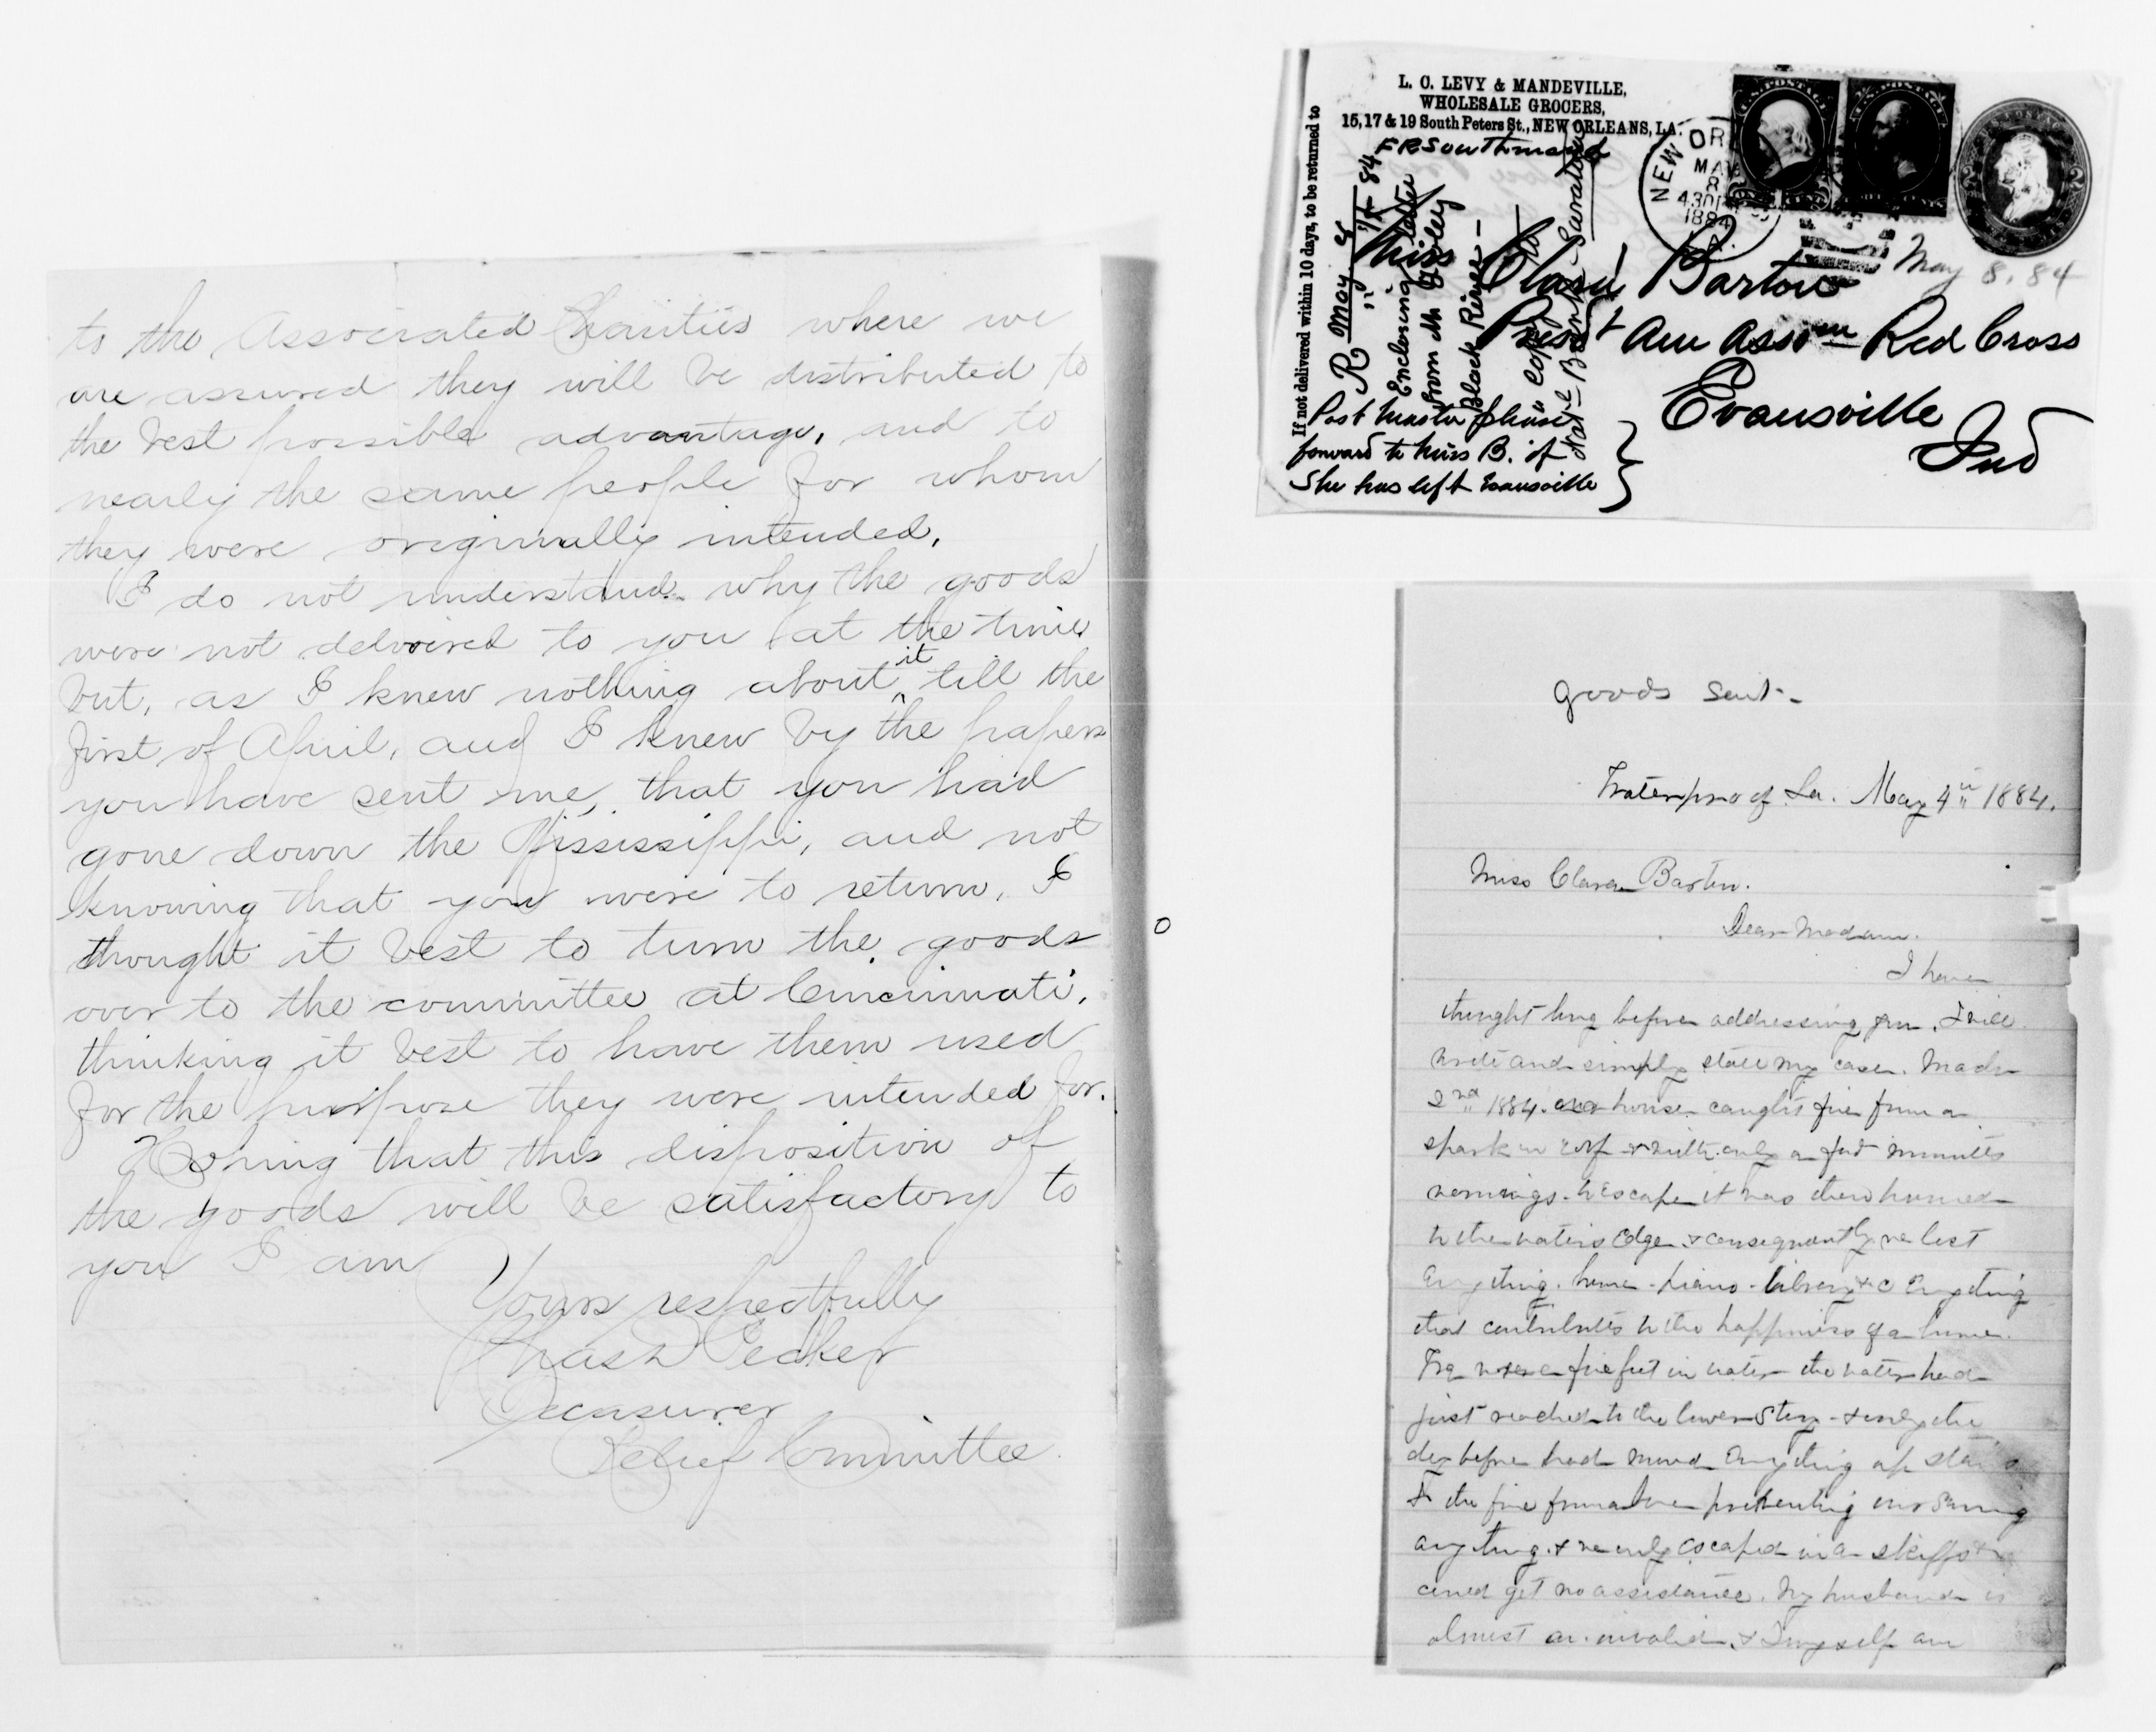 to the Associated Charities where we
are assured they will be distributed to
the best possible advantage, and to
nearly the same people for whom
they were originally intended.
I do not understand why the goods
were not delvoired to you at the time
but, as I knew nothing about it till the
first of April, and I knew by the papers
you have sent me, that you had
gone down the Mississippi, and not
knowing that you were to return, I
thought it best to turn the goods
over to the committee at Cincinnati,
thinking it best to have them used
for the purpose they were intended for.
Hoping that this disposition of
the goods will be satisfactory to
you I am
Yours respectfully
Chas H Pecker
Treasurer
Relief Committee
If not delivered within 10 days, to be returned to
L. C. LEVY & MANDEVILLE,
WHOLESALE GROCERS,
15, 17 & 19 South Peters St., NEW ORLEANS, LA.
F R Southmayd
NEW OR
MAY
8
430
1884
LA.
May 8. 84
Miss Clara Barton
Prest Am Assom Red Cross
Evansville
Ind
Post Master please
forward to Miss B. if
She has left Evansville
R May
Enclosing letter
from
Black River
Goods Sent-
Waterproof. La. May 4th 1884.
Miss Clara Barton.
Dear Madam.
I have
thought long before addressing you, I will
write and simply state my case. March
2nd 1884. our house caught fire from a
spark on roof & with only a few minutes
warnings to escape it was then burned
to the waters edge & consequently we lost
everything. home - piano - library &c everything
that contributes to the happiness of a home.
We were five feet in water the water had
just reached to the lower step - & only the
day before had moved everything up stairs
& the fire from above preventing our saving
anything. & we only escaped in a skiff &
could get no assistance. My husband is
almost an invalid, & I myself am